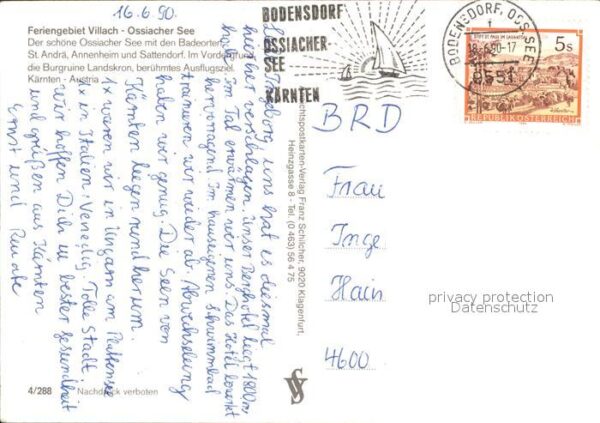 16.6.90.
Feriengebiet Villach - Ossiacher See
Der schöne Ossiacher See mit den Badeorten
St. Andrä, Annenheim und Sattendorf. Im Vordergrund
die Burgruine Landskron, berühmtes Ausflugsziel.
Kärnten - Austria
Liebe Ingeborg, uns hat es diesmal
hierher verschlagen. Unser Berghotel liegt 1800 m
hoch. Im Tal erwärmen wir uns. Das Hotel bewirkt
hervorragend. Im hauseigenen Schwimmbad
trainieren wir wieder ab. Abwechselung
haben wir genug. Die Seen von
Kärnten liegen rundherum.
1x waren wir in Ungarn am Plattensee
1x in Italien - Venedig. Tolle Stadt.
Wir hoffen Dich in bester Gesundheit
und grüßen aus Kärnten
Ernst und Renate
4/288 Nachdruck verboten
BODENSDORF
OSSIACHER-
SEE
KÄRNTEN
BODENSDORF, OSS. SEE
18.-6.90-17
9551
STIFT ST. PAUL IM LAVANTTAL
5 S
REPUBLIK ÖSTERREICH
Franz Schilcher, 9020 Klagenfurt,
Heinzgasse 8 - Tel. (0 463) 56 4 75
BRD
Frau
Inge
Hain
4600
privacy protection
Datenschutz